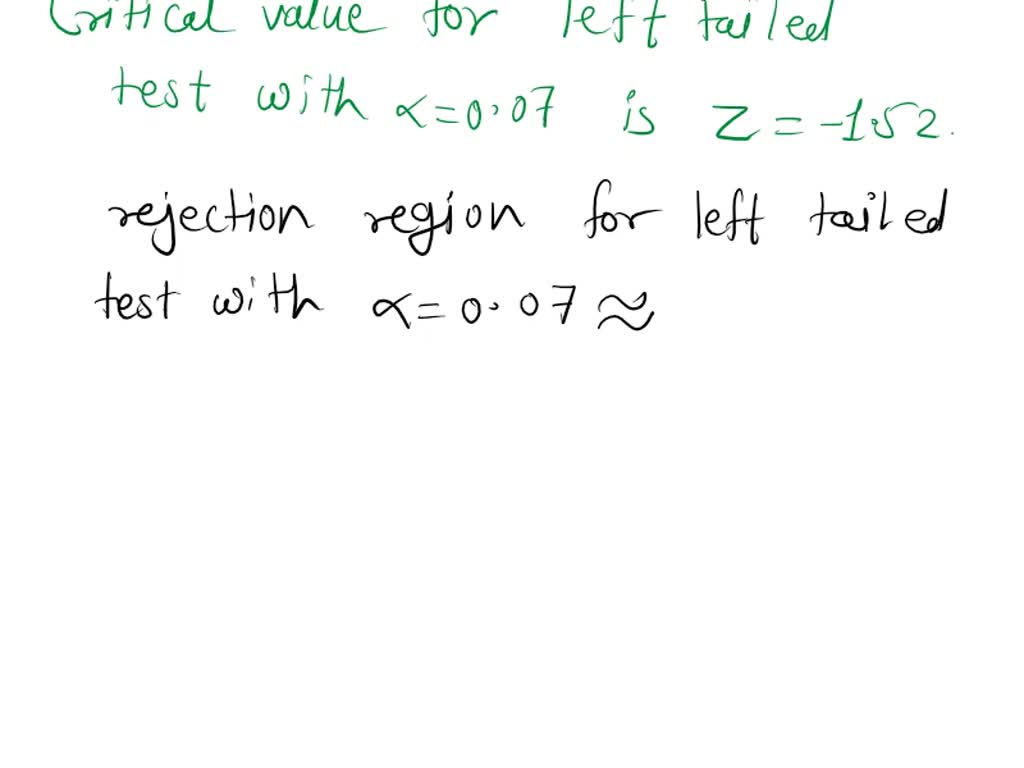 Critical value for left tailed
test with α=0.07 is Z = -1.52.
rejection region for left tailed
test with α=0.07 ≈